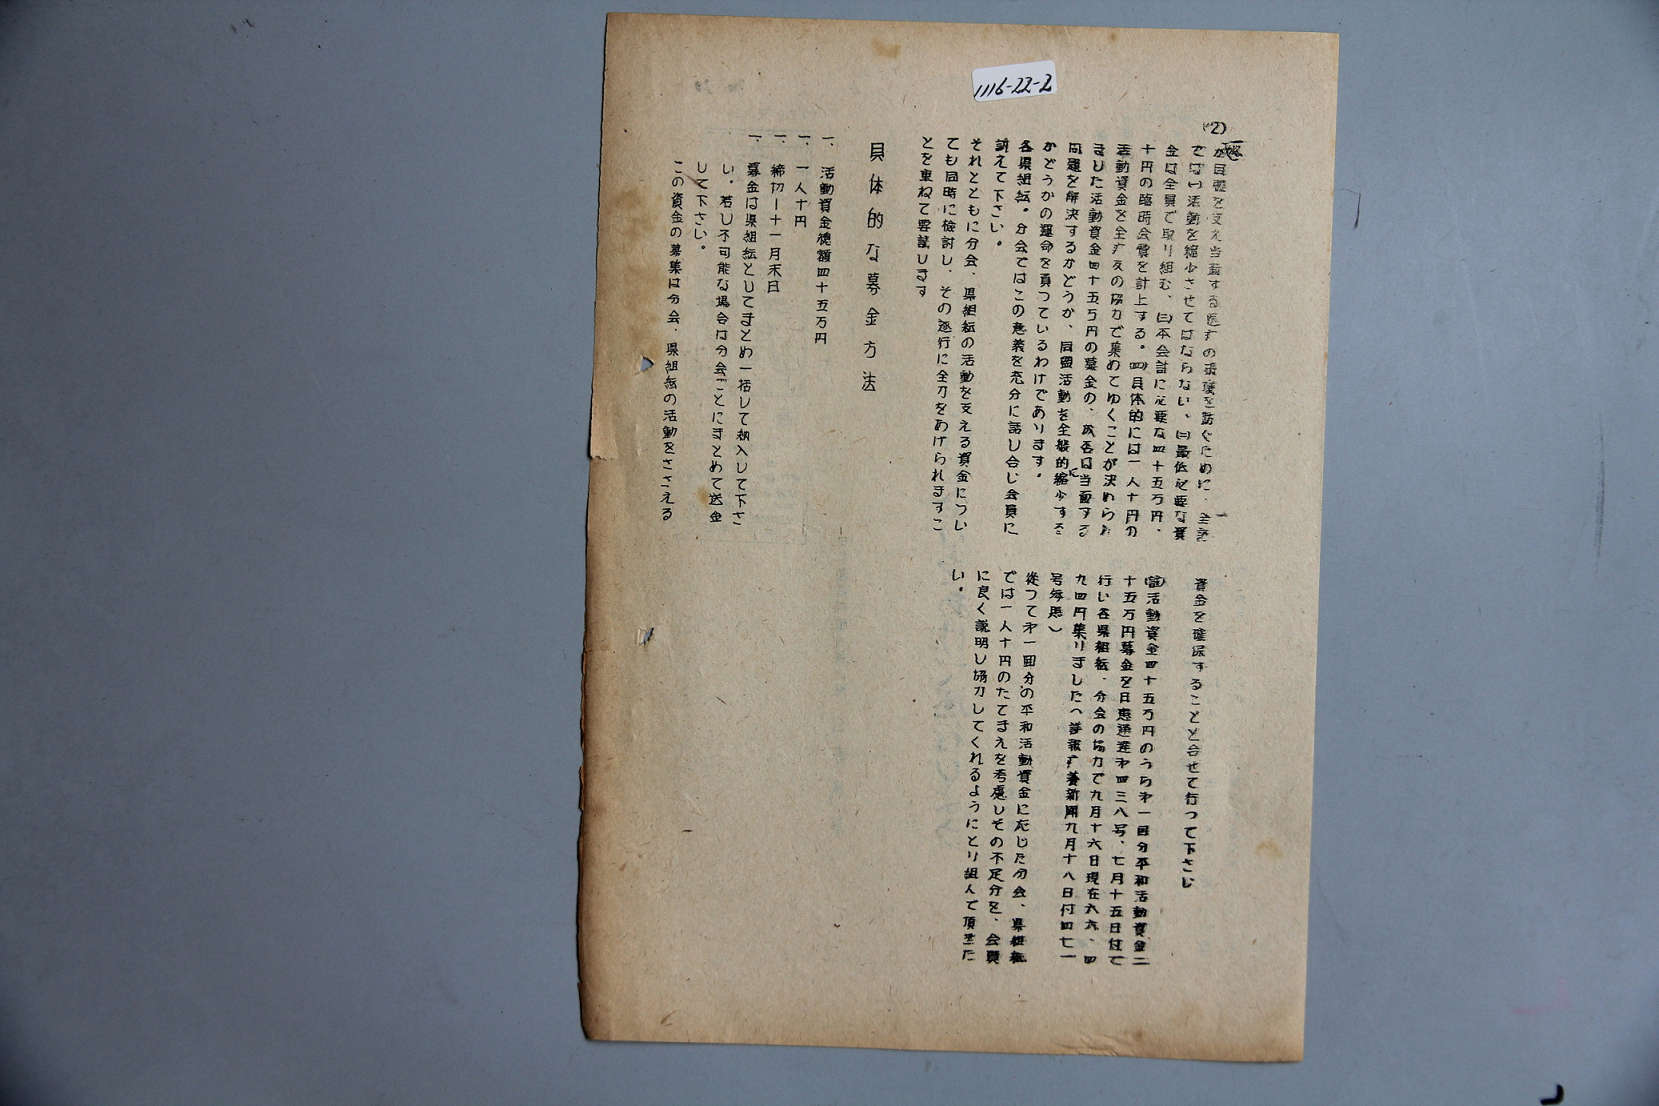 1116-22-2
(2)
が同盟を支え当面する医療の波瀾を防ぐために、全譲
ではい活動を縮少させてはならない、㈡最低必要な資
金は全員で取り組む、㈢本会計に必要な四十五万円、
十円の臨時会費を計上する。㈣具体的には一人十円の
活動資金を全疒友の協力で集めてゆくことが決められ
ました活動資金四十五万円の募金の、成否は当面する
問題を解決するかどうか、同盟活動を全般的に縮少する
かどうかの運命を負つているわけであります。
各県組転。分会ではこの意義を充分に話し合じ会員に
訴えて下さい。
それとともに分会、県組転の活動を支える資金につい
ても同時に検討し、その遂行に全力をあげられますこ
とを重ねて要請します
具体的な募金方法
一、活動資金總額四十五万円
一、一人十円
一、締切―十一月末日
一、募金は県組転としてまとめ一括して納入して下さ
い。若し不可能な場合は分会ごとにまとめて送金
して下さい。
この資金の募集は分会、県組転の活動をささえる
資金を確保することと合せて行つて下さい
活動資金四十五万円のうち才一回分平和活動資金二
十五万円募金を日患通達才四三八号、七月十五日付で
行い各県組転、分会の協力で九月十六日現在六六、四
九四円集りました(詳報療養新聞九月十八日付四七一
号参照)
從つて才一回分の平和活動資金に応じた分会、県組転
では一人十円のたてまえを考慮しその不足分を、会員
に良く説明し協力してくれるようにとり組んで頂きた
い。